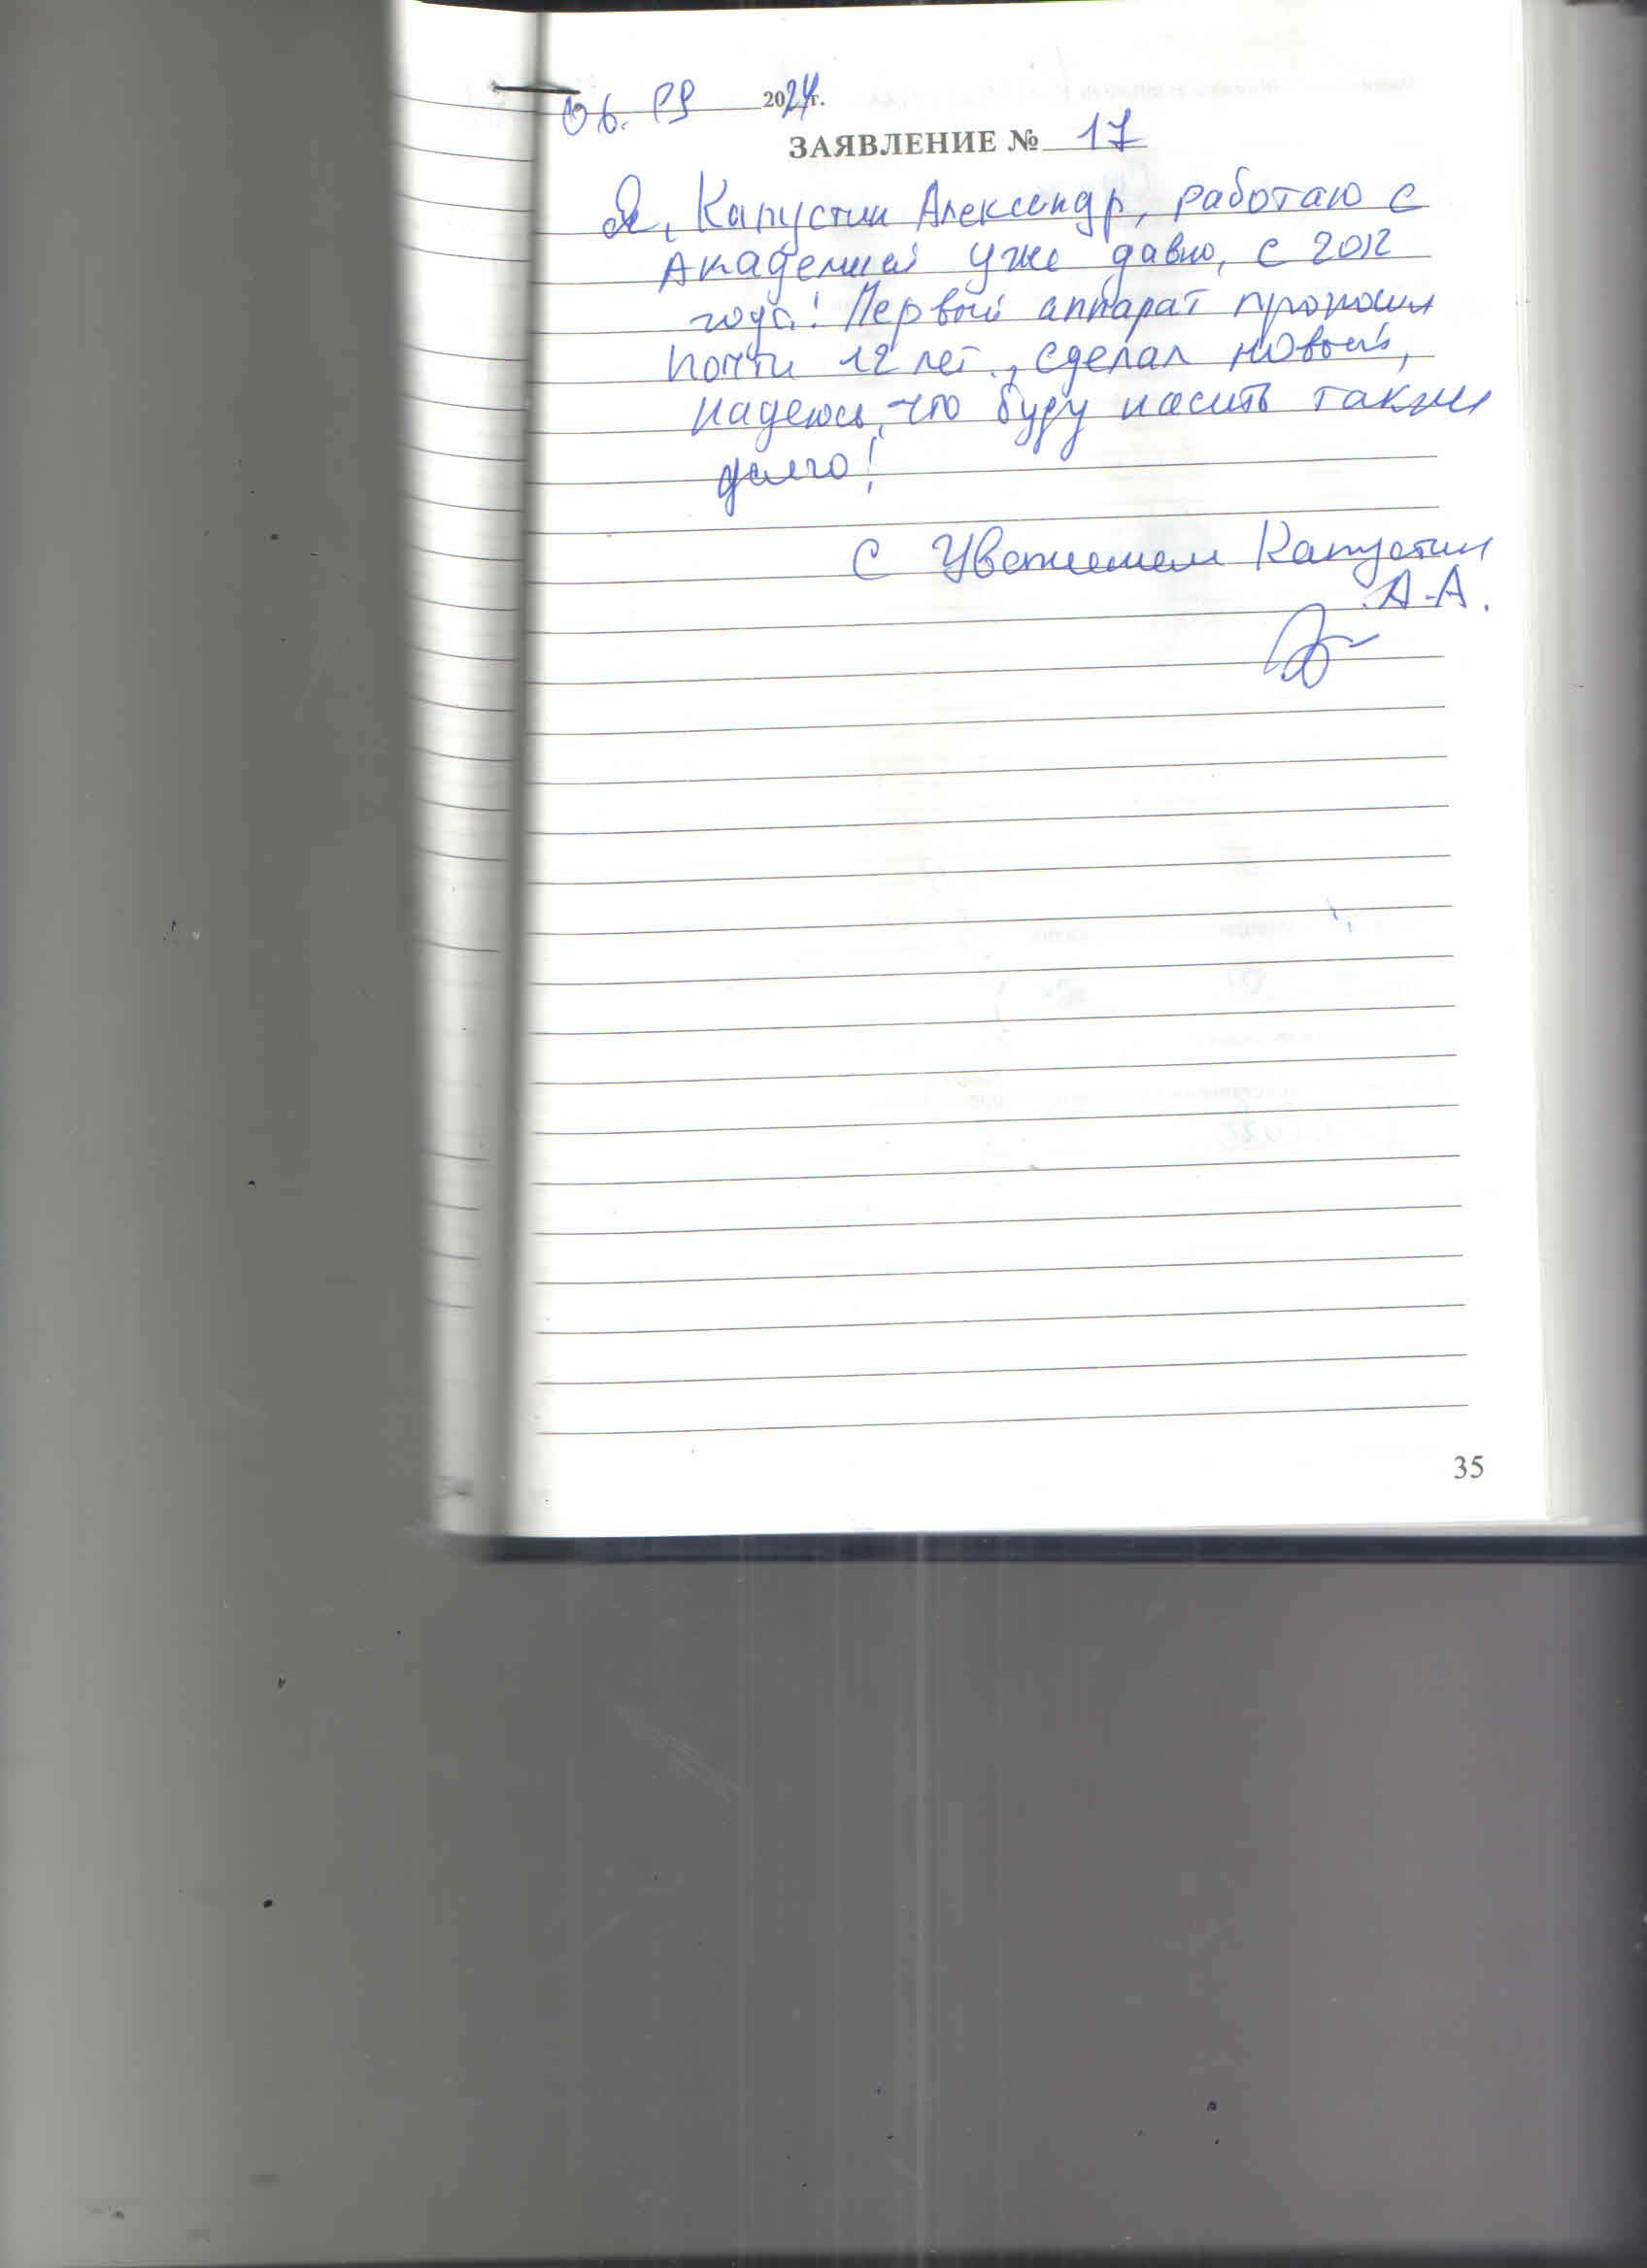 06. 09 2024г.
ЗАЯВЛЕНИЕ № 17
Я, Капустин Александр, работаю с
Академией уже давно, с 2012
года! Первый аппарат проносил
почти 12 лет., сделал новый,
надеюсь, что буду носить также
долго!
С Уважением Капустин
А.А.
35